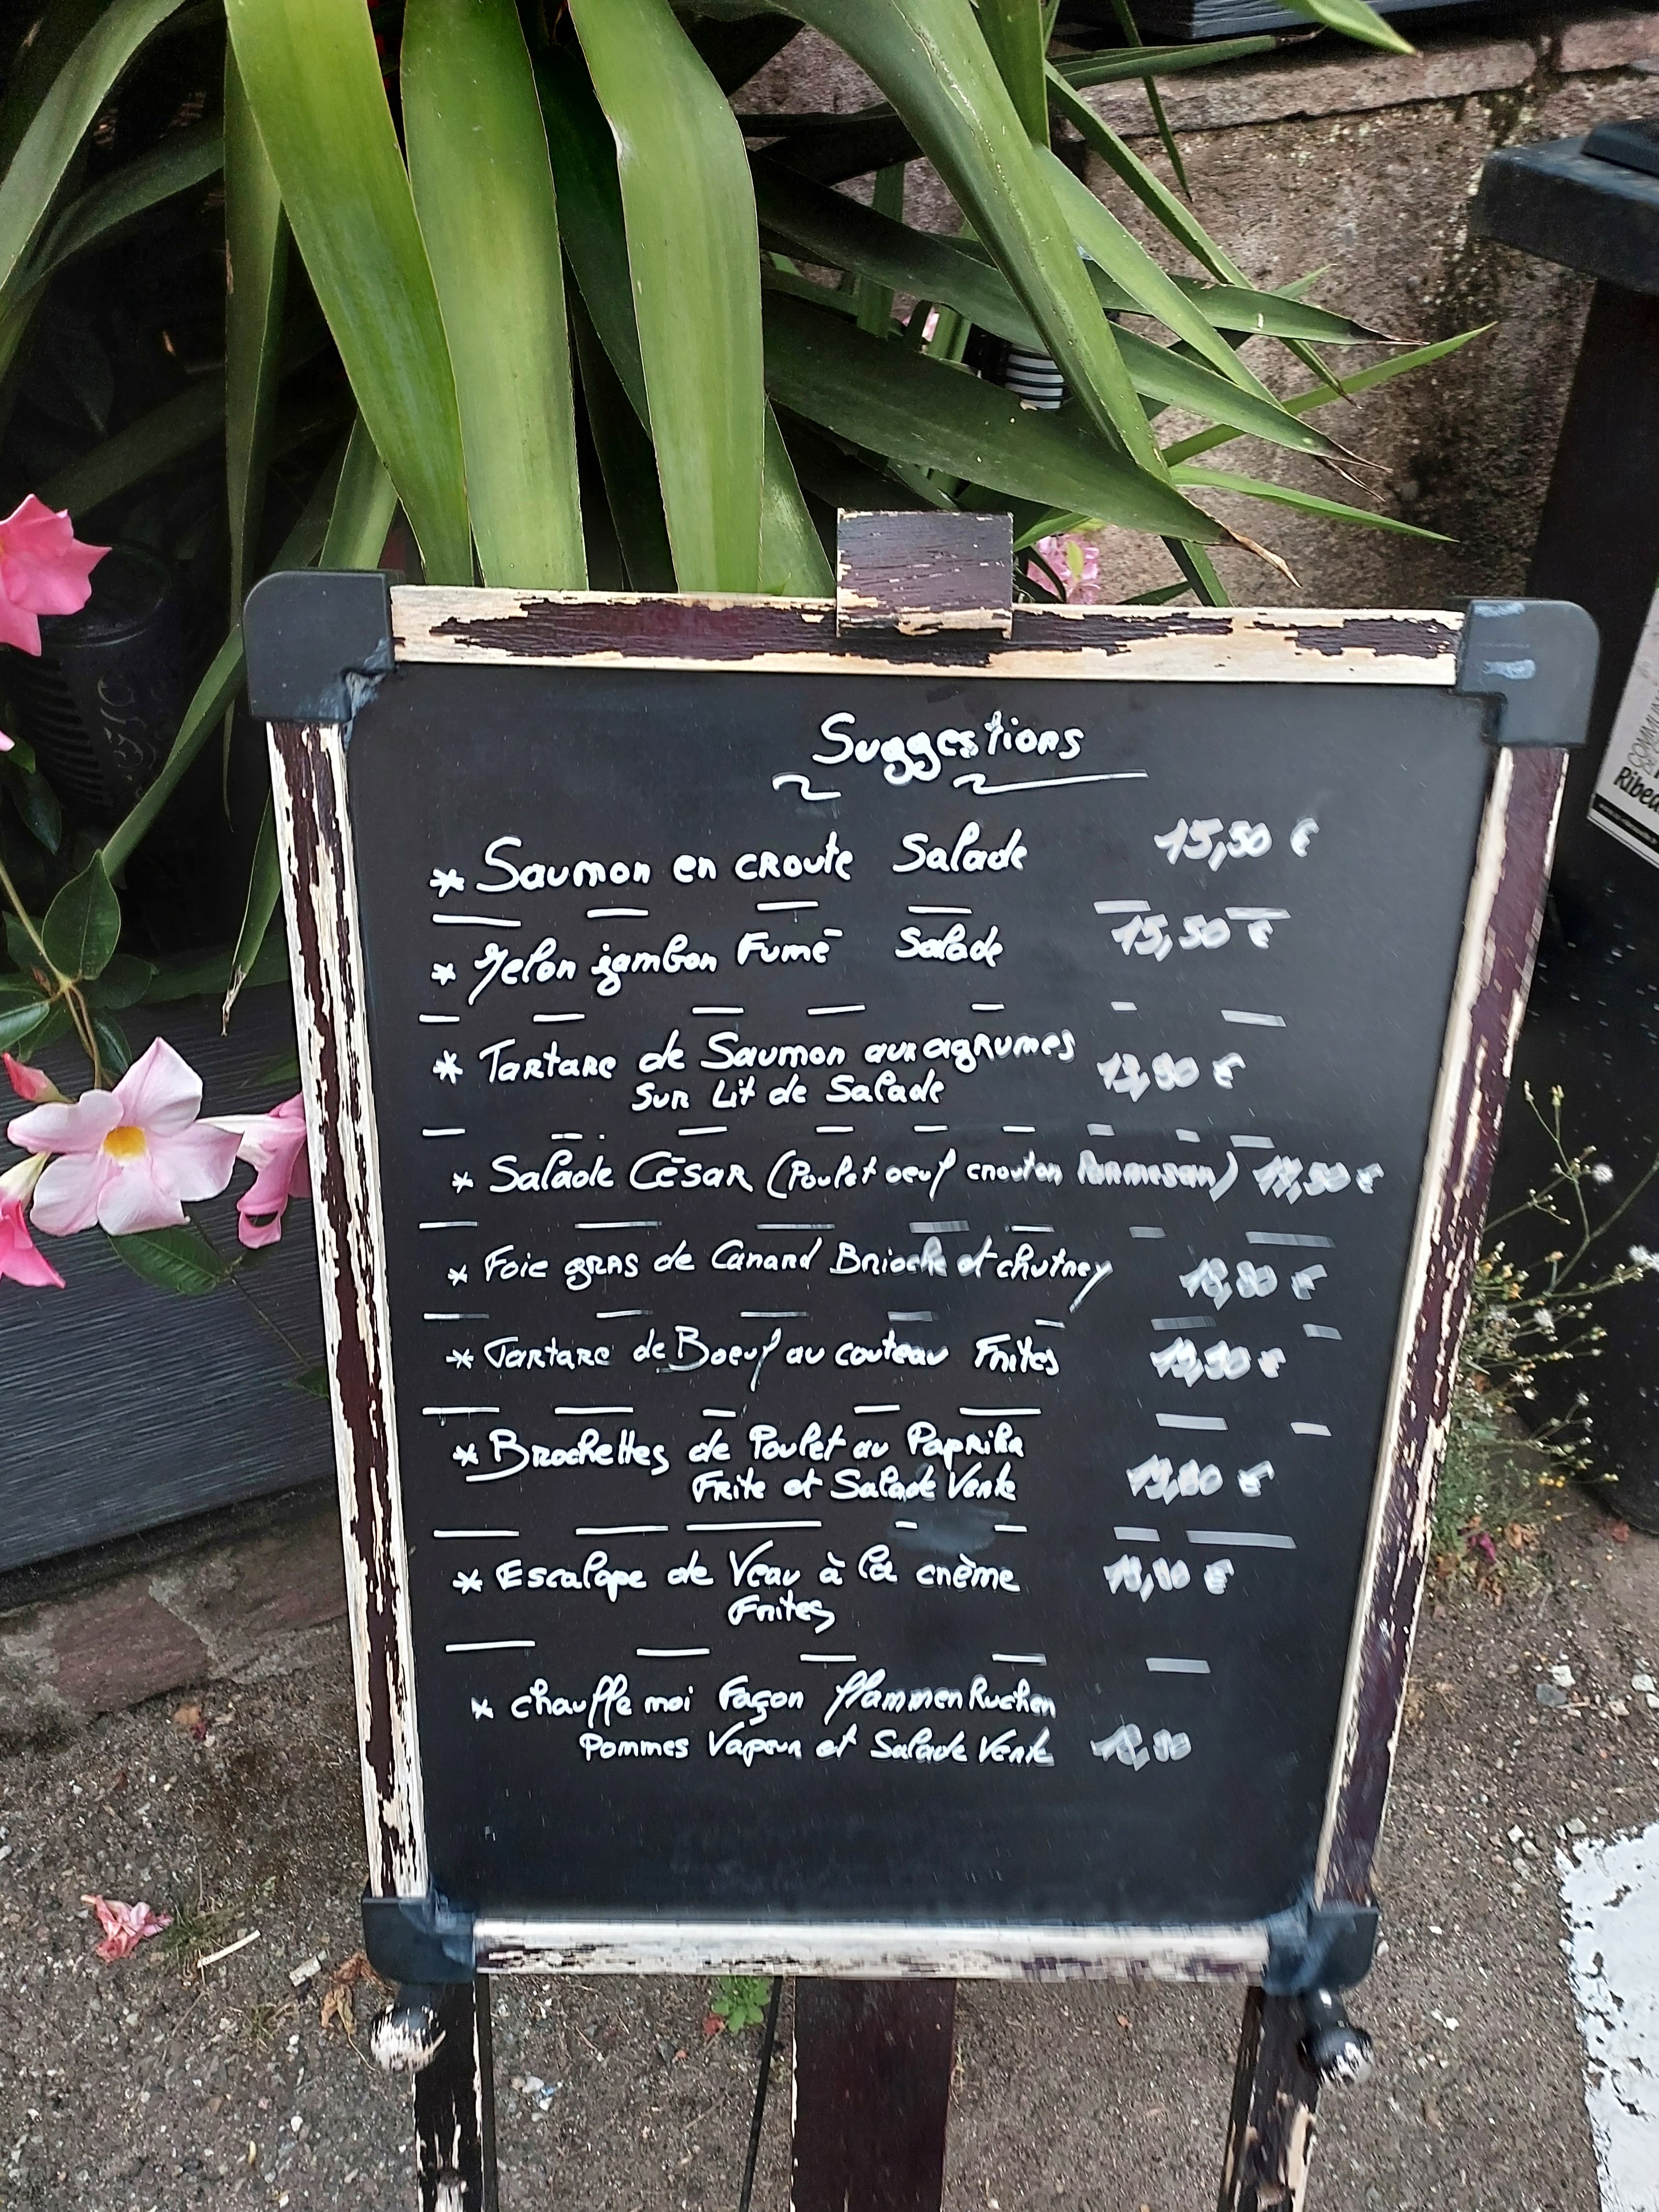 Suggestions
* Saumon en croute Salade 15,50 €
* Melon jambon Fumé Salade 15,50 €
* Tartare de Saumon aux agrumes
Sur Lit de Salade €
* Salade César (Poulet oeuf crouton Parmesan) €
* Foie gras de Canard Brioche et chutney €
* Tartare de Boeuf au couteau Frites €
* Brochettes de Poulet au Paprika
Frite et Salade Verte €
* Escalope de Veau à la crème €
Frites
* chauffe moi Façon flammenkuchen
Pommes Vapeur et Salade Verte
COMMUN
Ribea